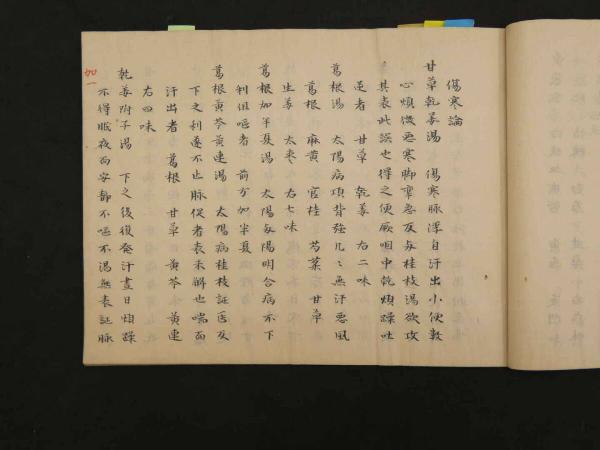 傷寒論
甘草乾姜湯 傷寒脉浮自汗出小便数
心煩微悪寒脚攣急反与桂枝湯欲攻
其表此誤也得之便厥咽中乾煩躁吐
逆者 甘草 乾姜 右二味
葛根湯 太陽病項背強几々無汗悪風
葛根 麻黄 官桂 芍薬 甘草
生姜 大棗 右七味
葛根加半夏湯 太陽与陽明合病不下
利但嘔者 前方加半夏
葛根黄芩黄連湯 太陽病桂枝証医反
下之利遂不止脉促者表未解也喘而
汗出者 葛根 甘草 黄芩 黄連
右四味
乾姜附子湯 下之後復発汗昼日煩躁
不得眠夜而安静不嘔不渇無表証脉
加一